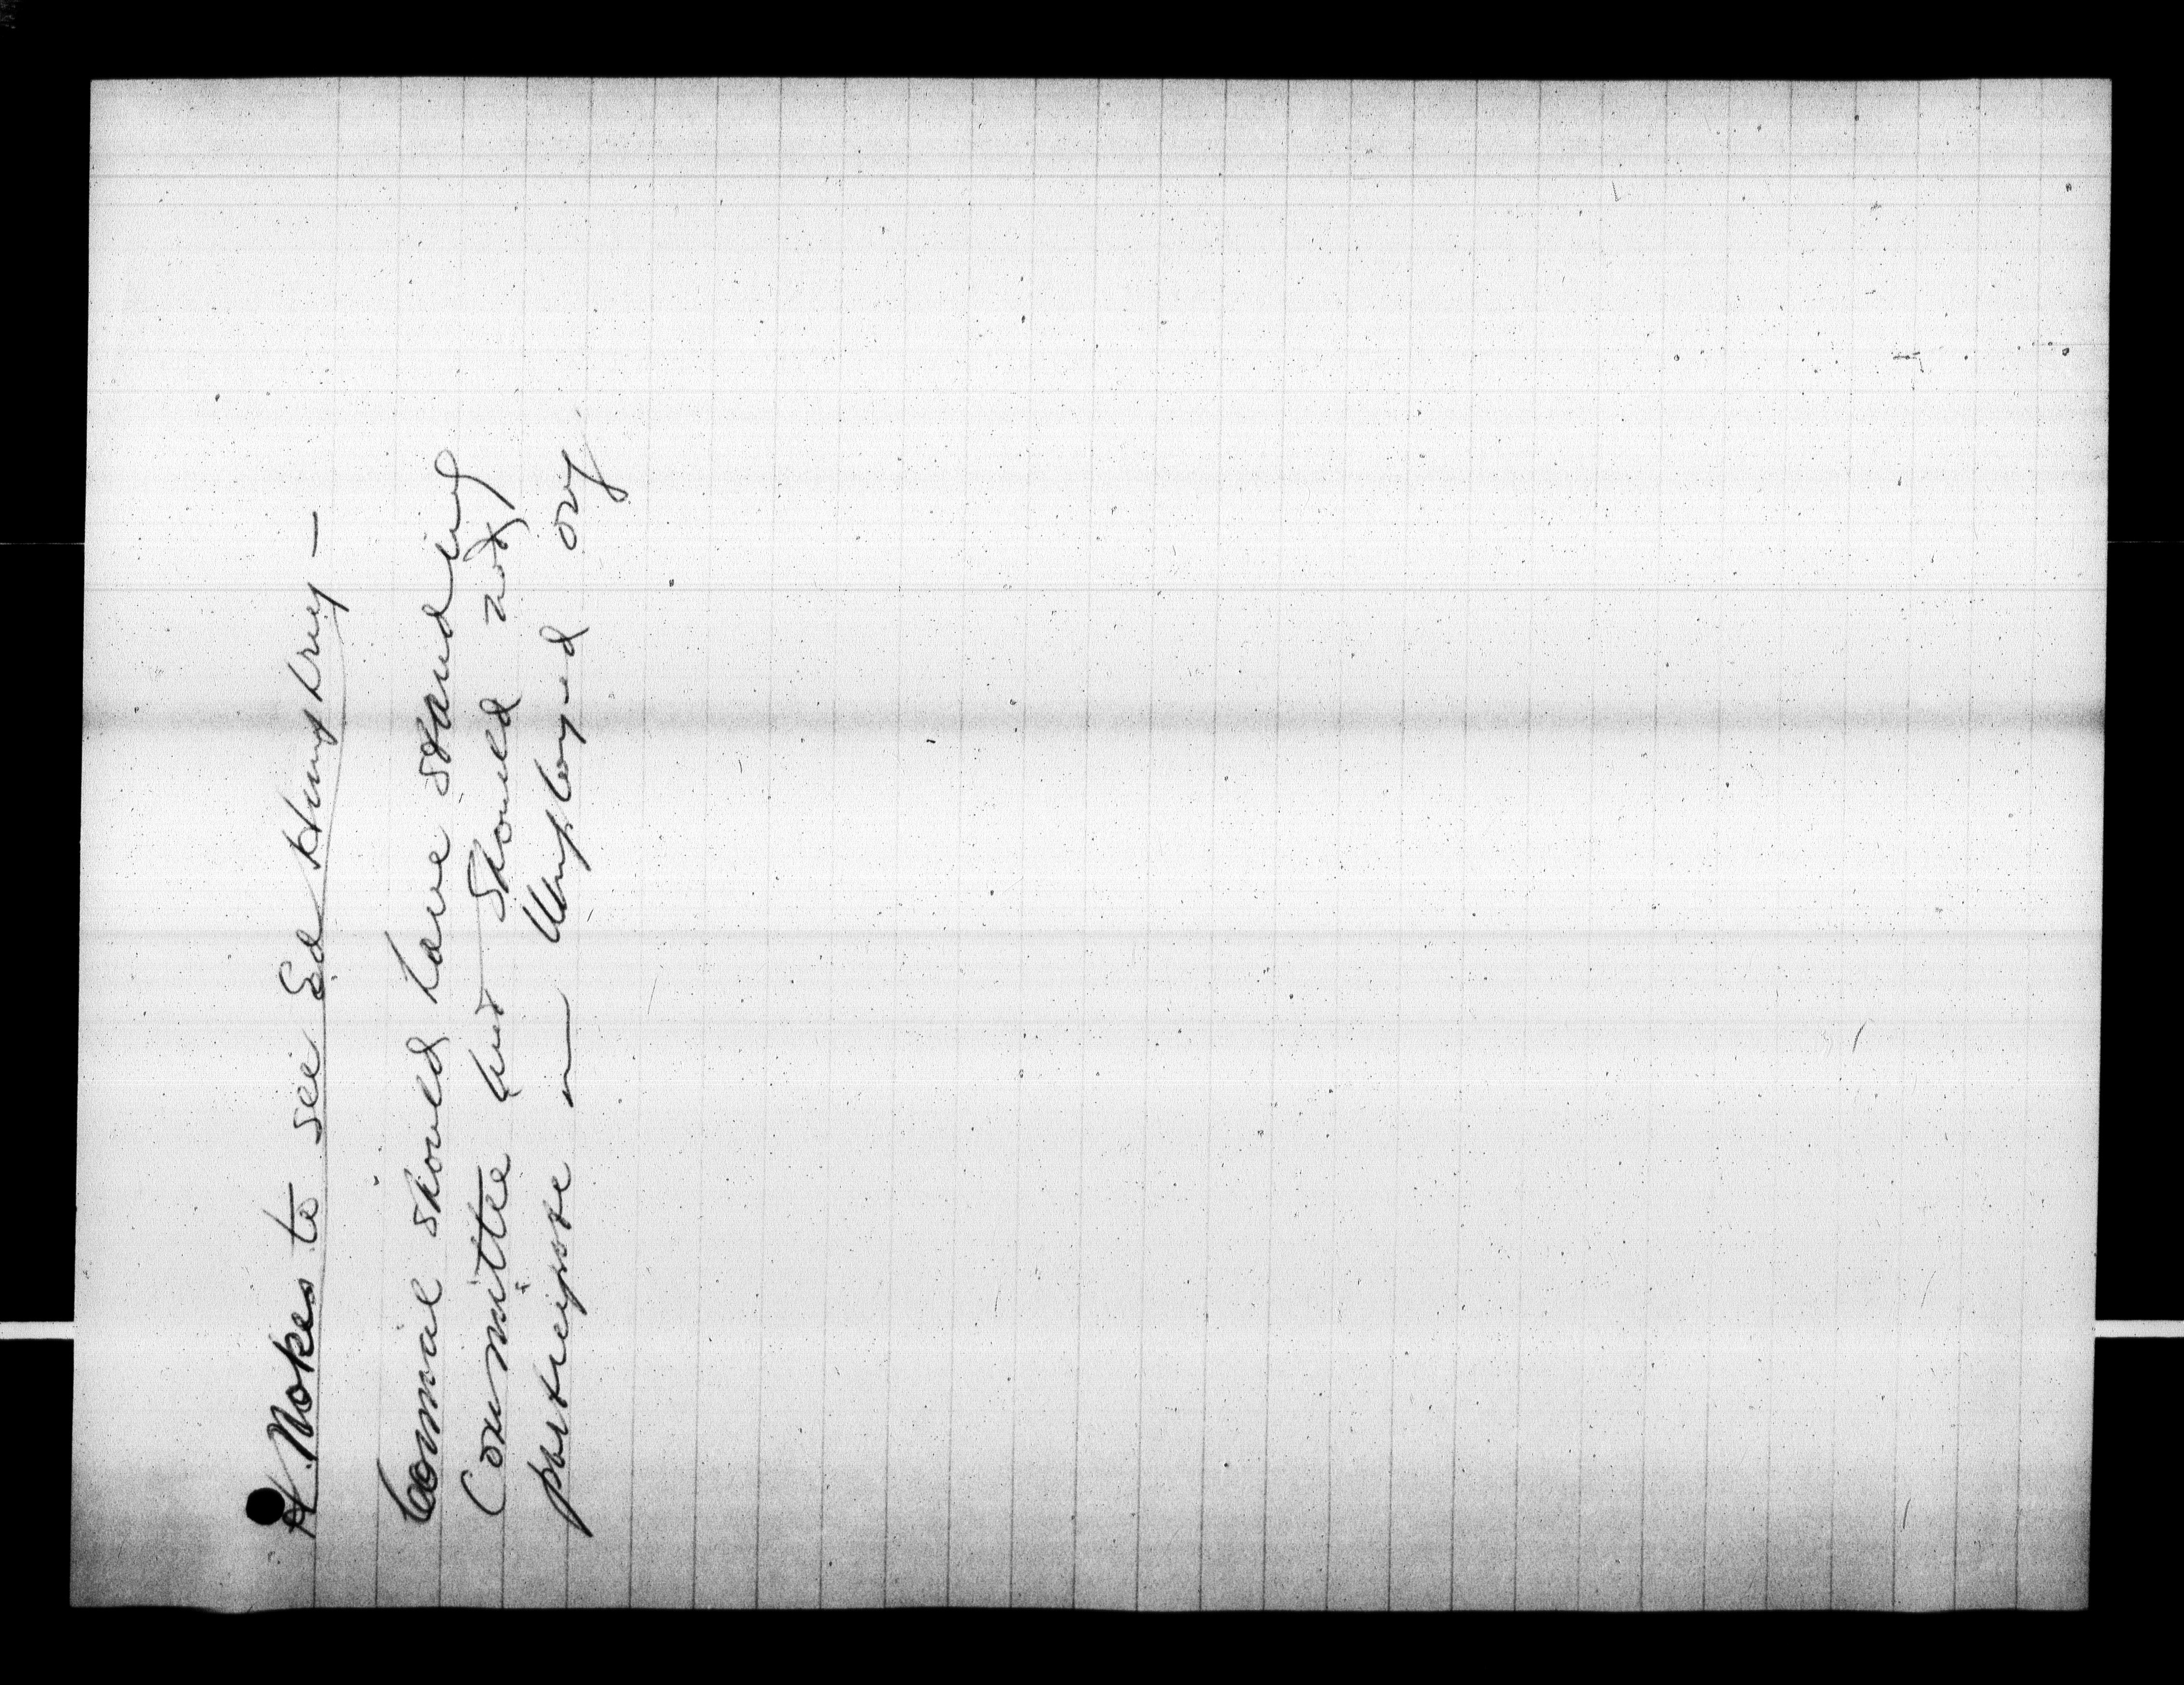 H. Nokes to see Ed Humphrey —
Council should have standing
Committee but should not
participate in Unployed org